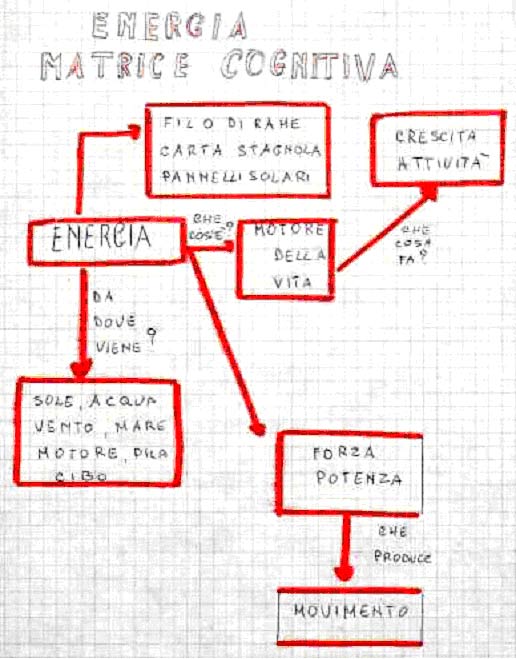 ENERGIA
MATRICE COGNITIVA
FILO DI RAME
CARTA STAGNOLA
PANNELLI SOLARI
CRESCITA
ATTIVITÀ
ENERGIA
CHE
COS'E'?
MOTORE
DELLA
VITA
CHE
COSA
FA?
DA
DOVE
VIENE?
SOLE, ACQUA
VENTO, MARE
MOTORE, PILA
CIBO
FORZA
POTENZA
CHE
PRODUCE
MOVIMENTO